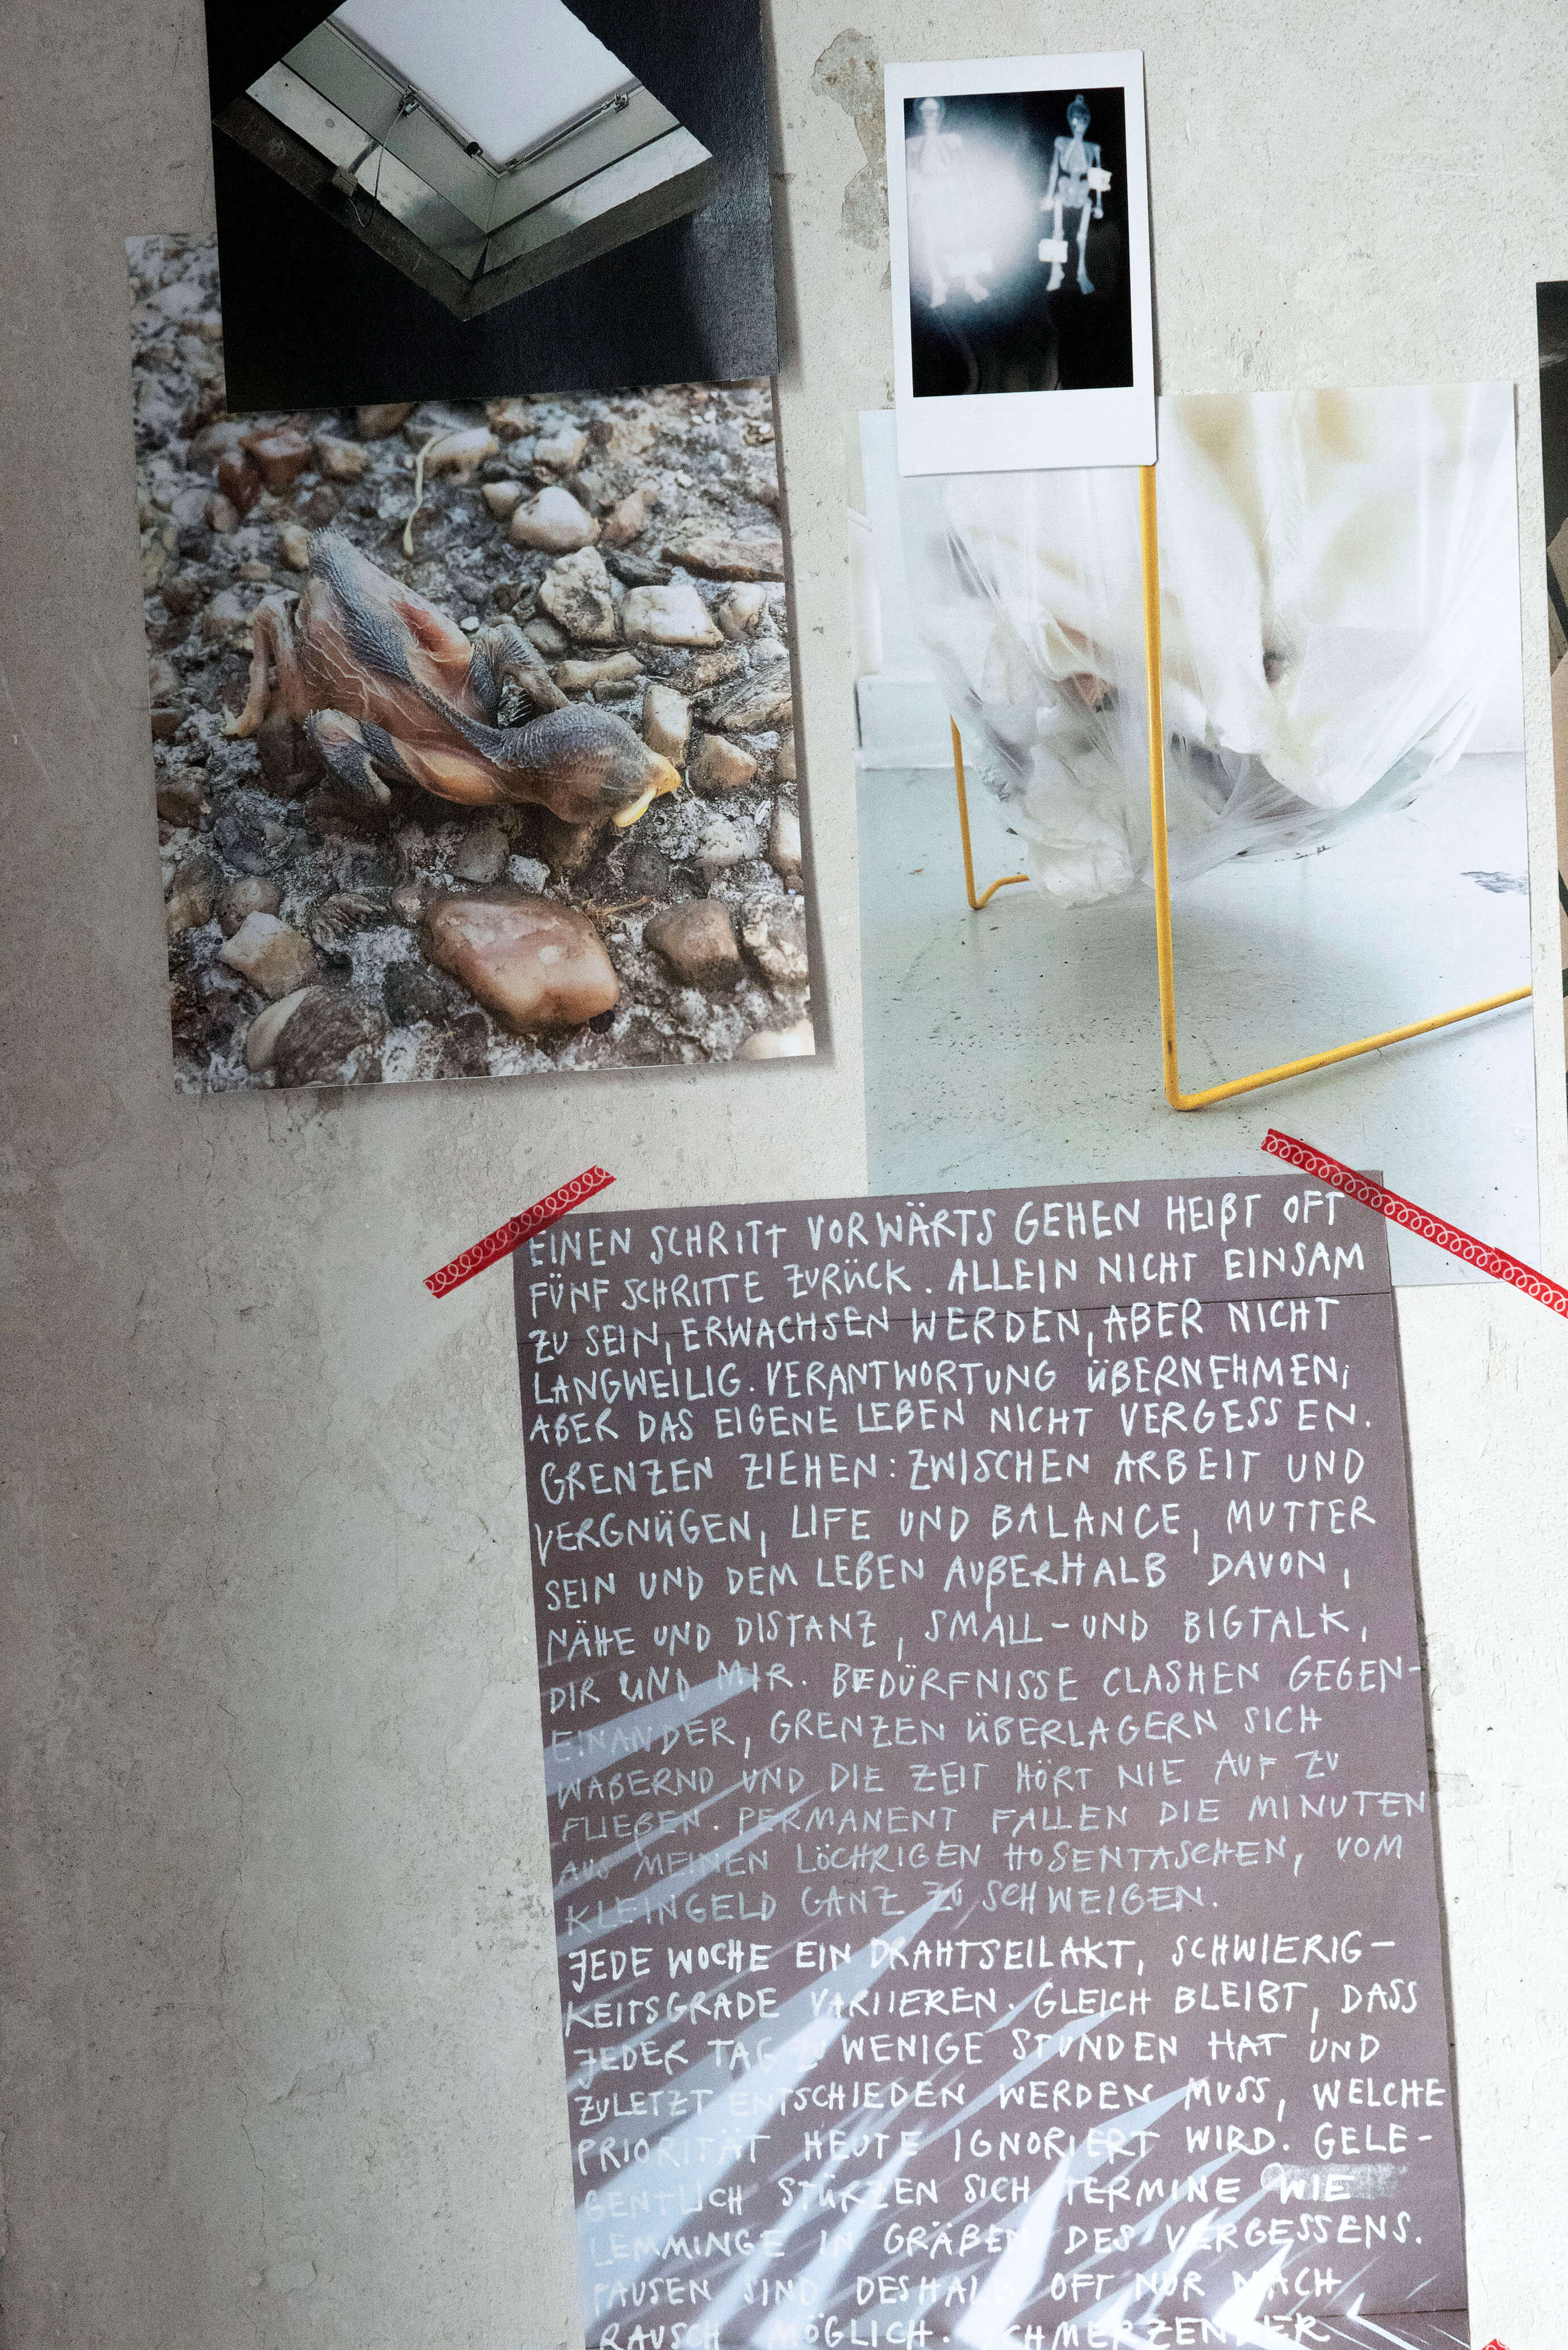 EINEN SCHRITT VORWÄRTS GEHEN HEIßT OFT
FÜNF SCHRITTE ZURÜCK. ALLEIN NICHT EINSAM
ZU SEIN, ERWACHSEN WERDEN, ABER NICHT
LANGWEILIG. VERANTWORTUNG ÜBERNEHMEN;
ABER DAS EIGENE LEBEN NICHT VERGESSEN.
GRENZEN ZIEHEN: ZWISCHEN ARBEIT UND
VERGNÜGEN, LIFE UND BALANCE, MUTTER
SEIN UND DEM LEBEN AUßERHALB DAVON,
NÄHE UND DISTANZ, SMALL-UND BIGTALK,
DIR UND MIR. BEDÜRFNISSE CLASHEN GEGEN-
EINANDER, GRENZEN ÜBERLAGERN SICH
WABERND UND DIE ZEIT HÖRT NIE AUF ZU
FLIEßEN. PERMANENT FALLEN DIE MINUTEN
AUS MEINEN LÖCHRIGEN HOSENTASCHEN, VOM
KLEINGELD GANZ ZU SCHWEIGEN.
JEDE WOCHE EIN DRAHTSEILAKT, SCHWIERIG-
KEITSGRADE VARIIEREN. GLEICH BLEIBT, DASS
JEDER TAG ZU WENIGE STUNDEN HAT UND
ZULETZT ENTSCHIEDEN WERDEN MUSS, WELCHE
PRIORITÄT HEUTE IGNORIERT WIRD. GELE-
GENTLICH STÜRZEN SICH TERMINE WIE
LEMMINGE IN GRÄBEN DES VERGESSENS.
PAUSEN SIND DESHALB OFT NUR NACH
RAUSCH MÖGLICH. SCHMERZENDER